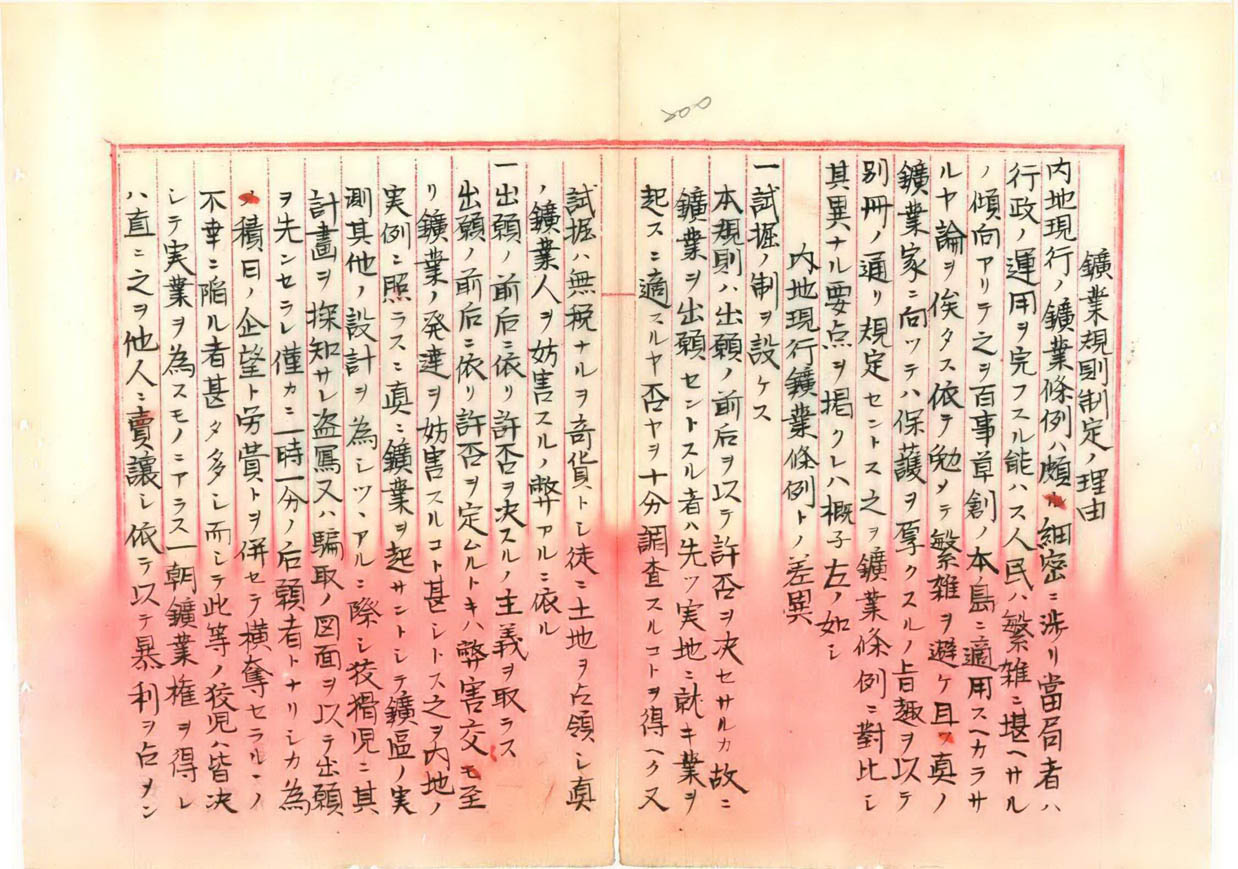 鑛業規則制定ノ理由
内地現行ノ鑛業條例ハ頗ル細密ニ渉リ當局者ハ
行政ノ運用ヲ完フスル能ハス人民ハ繁雑ニ堪ヘサル
ノ傾向アリテ之ヲ百事草創ノ本島ニ適用スヘカラサ
ルヤ論ヲ俟タス依テ勉メテ繁雑ヲ避ケ且ツ真ノ
鑛業家ニ向ツテハ保護ヲ厚クスルノ旨趣ヲ以テ
別冊ノ通リ規定セントス之ヲ鑛業條例ニ對比シ
其異ナル要点ヲ掲クレハ概子左ノ如シ
内地現行鑛業條例トノ差異
一試掘ノ制ヲ設ケス
本規則ハ出願ノ前后ヲ以テ許否ヲ决セサルカ故ニ
鑛業ヲ出願セントスル者ハ先ツ実地ニ就キ業ヲ
起スニ適スルヤ否ヤヲ十分調査スルコトヲ得ヘク又
試掘ハ無税ナルヲ奇貨トシ徒ニ土地ヲ占領シ真
ノ鑛業人ヲ妨害スルノ弊アルニ依ル
一出願ノ前后ニ依リ許否ヲ决スルノ主義ヲ取ラス
出願ノ前后ニ依リ許否ヲ定ムルトキハ弊害交モ至
リ鑛業ノ発達ヲ妨害スルコト甚シトス之ヲ内地ノ
実例ニ照ラスニ真ニ鑛業ヲ起サントシテ鑛區ノ実
測其他ノ設計ヲ為シツヽアルニ際シ狡猾児ニ其
計畫ヲ探知サレ盗冩又ハ騙取ノ図面ヲ以テ出願
ヲ先ンセラレ僅カニ一時一分ノ后願者トナリシカ為
メ積日ノ企望ト労費トヲ併セテ横奪セラルヽノ
不幸ニ陥ル者甚タ多シ而シテ此等ノ狡児ハ皆决
シテ実業ヲ為スモノニアラス一朝鑛業権ヲ得レ
ハ直ニ之ヲ他人ニ賣譲シ依テ以テ暴利ヲ占メン